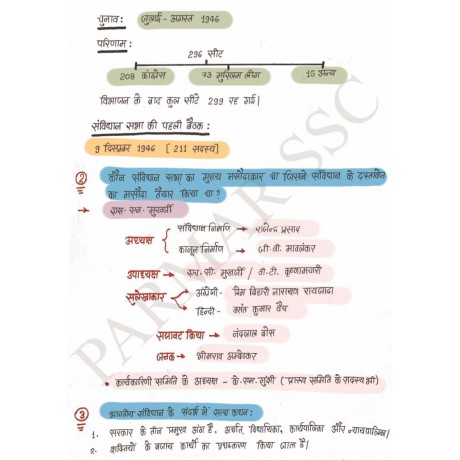 चुनाव: जुलाई - अगस्त 1946
परिणाम:
296 सीट
208 कांग्रेस 73 मुस्लिम लीग 15 अन्य
विभाजन के बाद कुल सीटें 299 रह गई।
संविधान सभा की पहली बैठक:
9 दिसम्बर 1946 [ 211 सदस्य ]
② कौन संविधान सभा का मुख्य मसौदाकार था जिसने संविधान के दस्तावेज
का मसौदा तैयार किया था ?
→ एस. एन. मुखर्जी
अध्यक्ष
संविधान निर्माण → राजेन्द्र प्रसाद
कानून निर्माण → जी. वी. मावलंकर
उपाध्यक्ष → एच. सी. मुखर्जी / वी. टी. कृष्णामचारी
सुलेखाकार
अंग्रेजी - प्रेम बिहारी नारायण रायजादा
हिन्दी - वसंत कुमार वैद्य
सजावट किया → नंदलाल बोस
जनक → भीमराव अम्बेडकर
• कार्यकारिणी समिति के अध्यक्ष - के. एम. मुंशी ( प्रारूप समिति के सदस्य भी )
③ भारतीय संविधान के संदर्भ में सत्य कथन:
1. सरकार के तीन प्रमुख अंग हैं, अर्थात् विधायिका, कार्यपालिका और न्यायपालिका।
2. शक्तियों के बजाय कार्यों का पृथक्करण किया जाता है।
PARMAR SSC